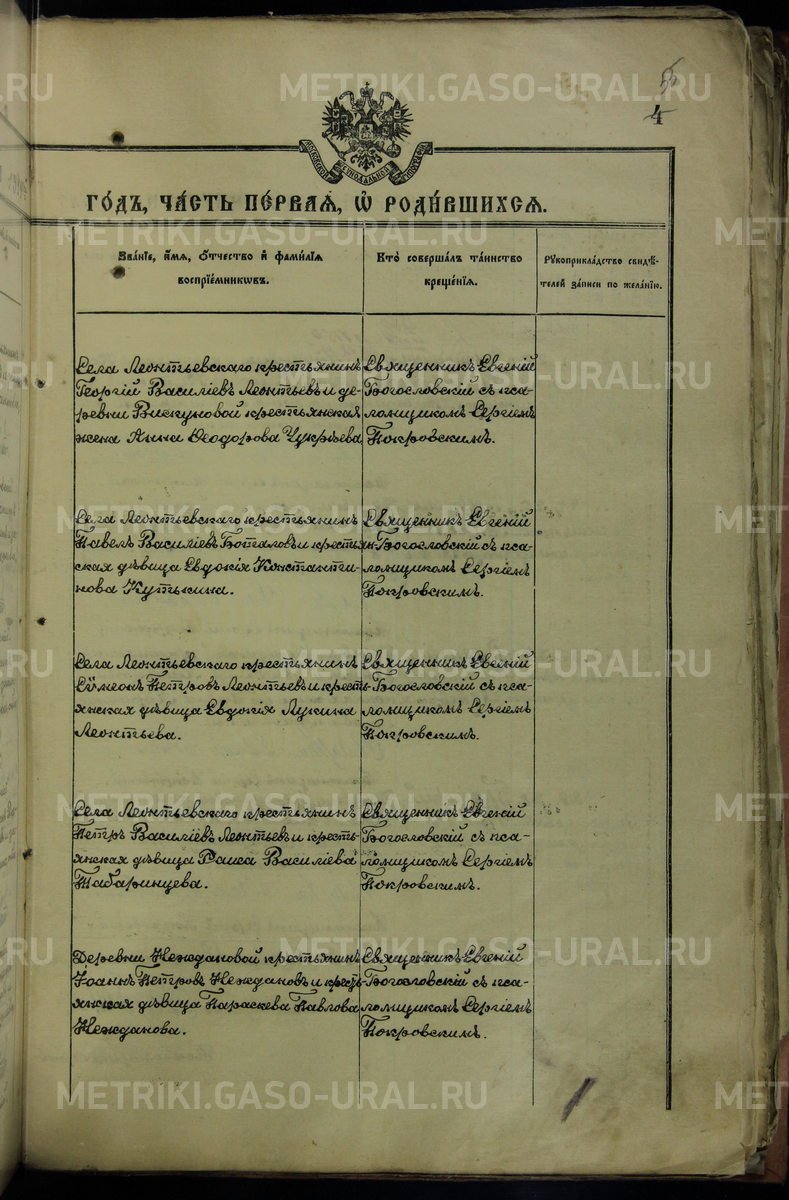 4
МОСКОВСКОЙ СѴНОДАЛЬНОЙ ТИПОГРАФІИ
ГО́ДЪ, ЧА́СТЬ ПЕ́РВАѦ, Ѡ҆ РОДИ́ВШИХСѦ.
Зва́нїе, и҆́мѧ, ѻ҆́тчество и҆ фами́лїѧ
воспрїе́мникѡвъ.
Кто̀ соверша́лъ та́инство
креще́нїѧ.
Рꙋкоприкла́дство свидѣ́-
телей за́писи по жела́нїю.
Села Леонтьевскаго крестьянинъ
Георгій Василіевъ Леонтьевъ и де-
ревни крестьянская
жена Анна Ѳеодорова
Священникъ Евгеній
Богословскій съ пса-
ломщикомъ Сергіемъ
Покровскимъ.
Села Леонтьевскаго крестьянинъ
Павелъ Василіевъ Боталовъ и крестьян-
ская дѣвица Евдокія Константи-
нова Кутькина.
Священникъ Евгеній
Богословскій съ пса-
ломщикомъ Сергіемъ
Покровскимъ.
Села Леонтьевскаго крестьянинъ
Сѵмеонъ Петровъ Леонтьевъ и кресть-
янская дѣвица Евдокія Лукина
Леонтьева.
Священникъ Евгеній
Богословскій съ пса-
ломщикомъ Сергіемъ
Покровскимъ.
Села Леонтьевскаго крестьянинъ
Петръ Василіевъ Леонтьевъ и кресть-
янская дѣвица Раиса Василіева
Табаринцева.
Священникъ Евгеній
Богословскій съ пса-
ломщикомъ Сергіемъ
Покровскимъ.
Деревни Неждановой крестьянинъ
Іоаннъ Петровъ Неждановъ и кресть-
янская дѣвица Параскева Павлова
Нежданова.
Священникъ Евгеній
Богословскій съ пса-
ломщикомъ Сергіемъ
Покровскимъ.
METRIKI.GASO-URAL.RU
METRIKI.GASO-URAL.RU
METRIKI.GASO-URAL.RU
METRIKI.GASO-URAL.RU
METRIKI.GASO-URAL.RU
METRIKI.GASO-URAL.RU
METRIKI.GASO-URAL.RU
METRIKI.GASO-URAL.RU